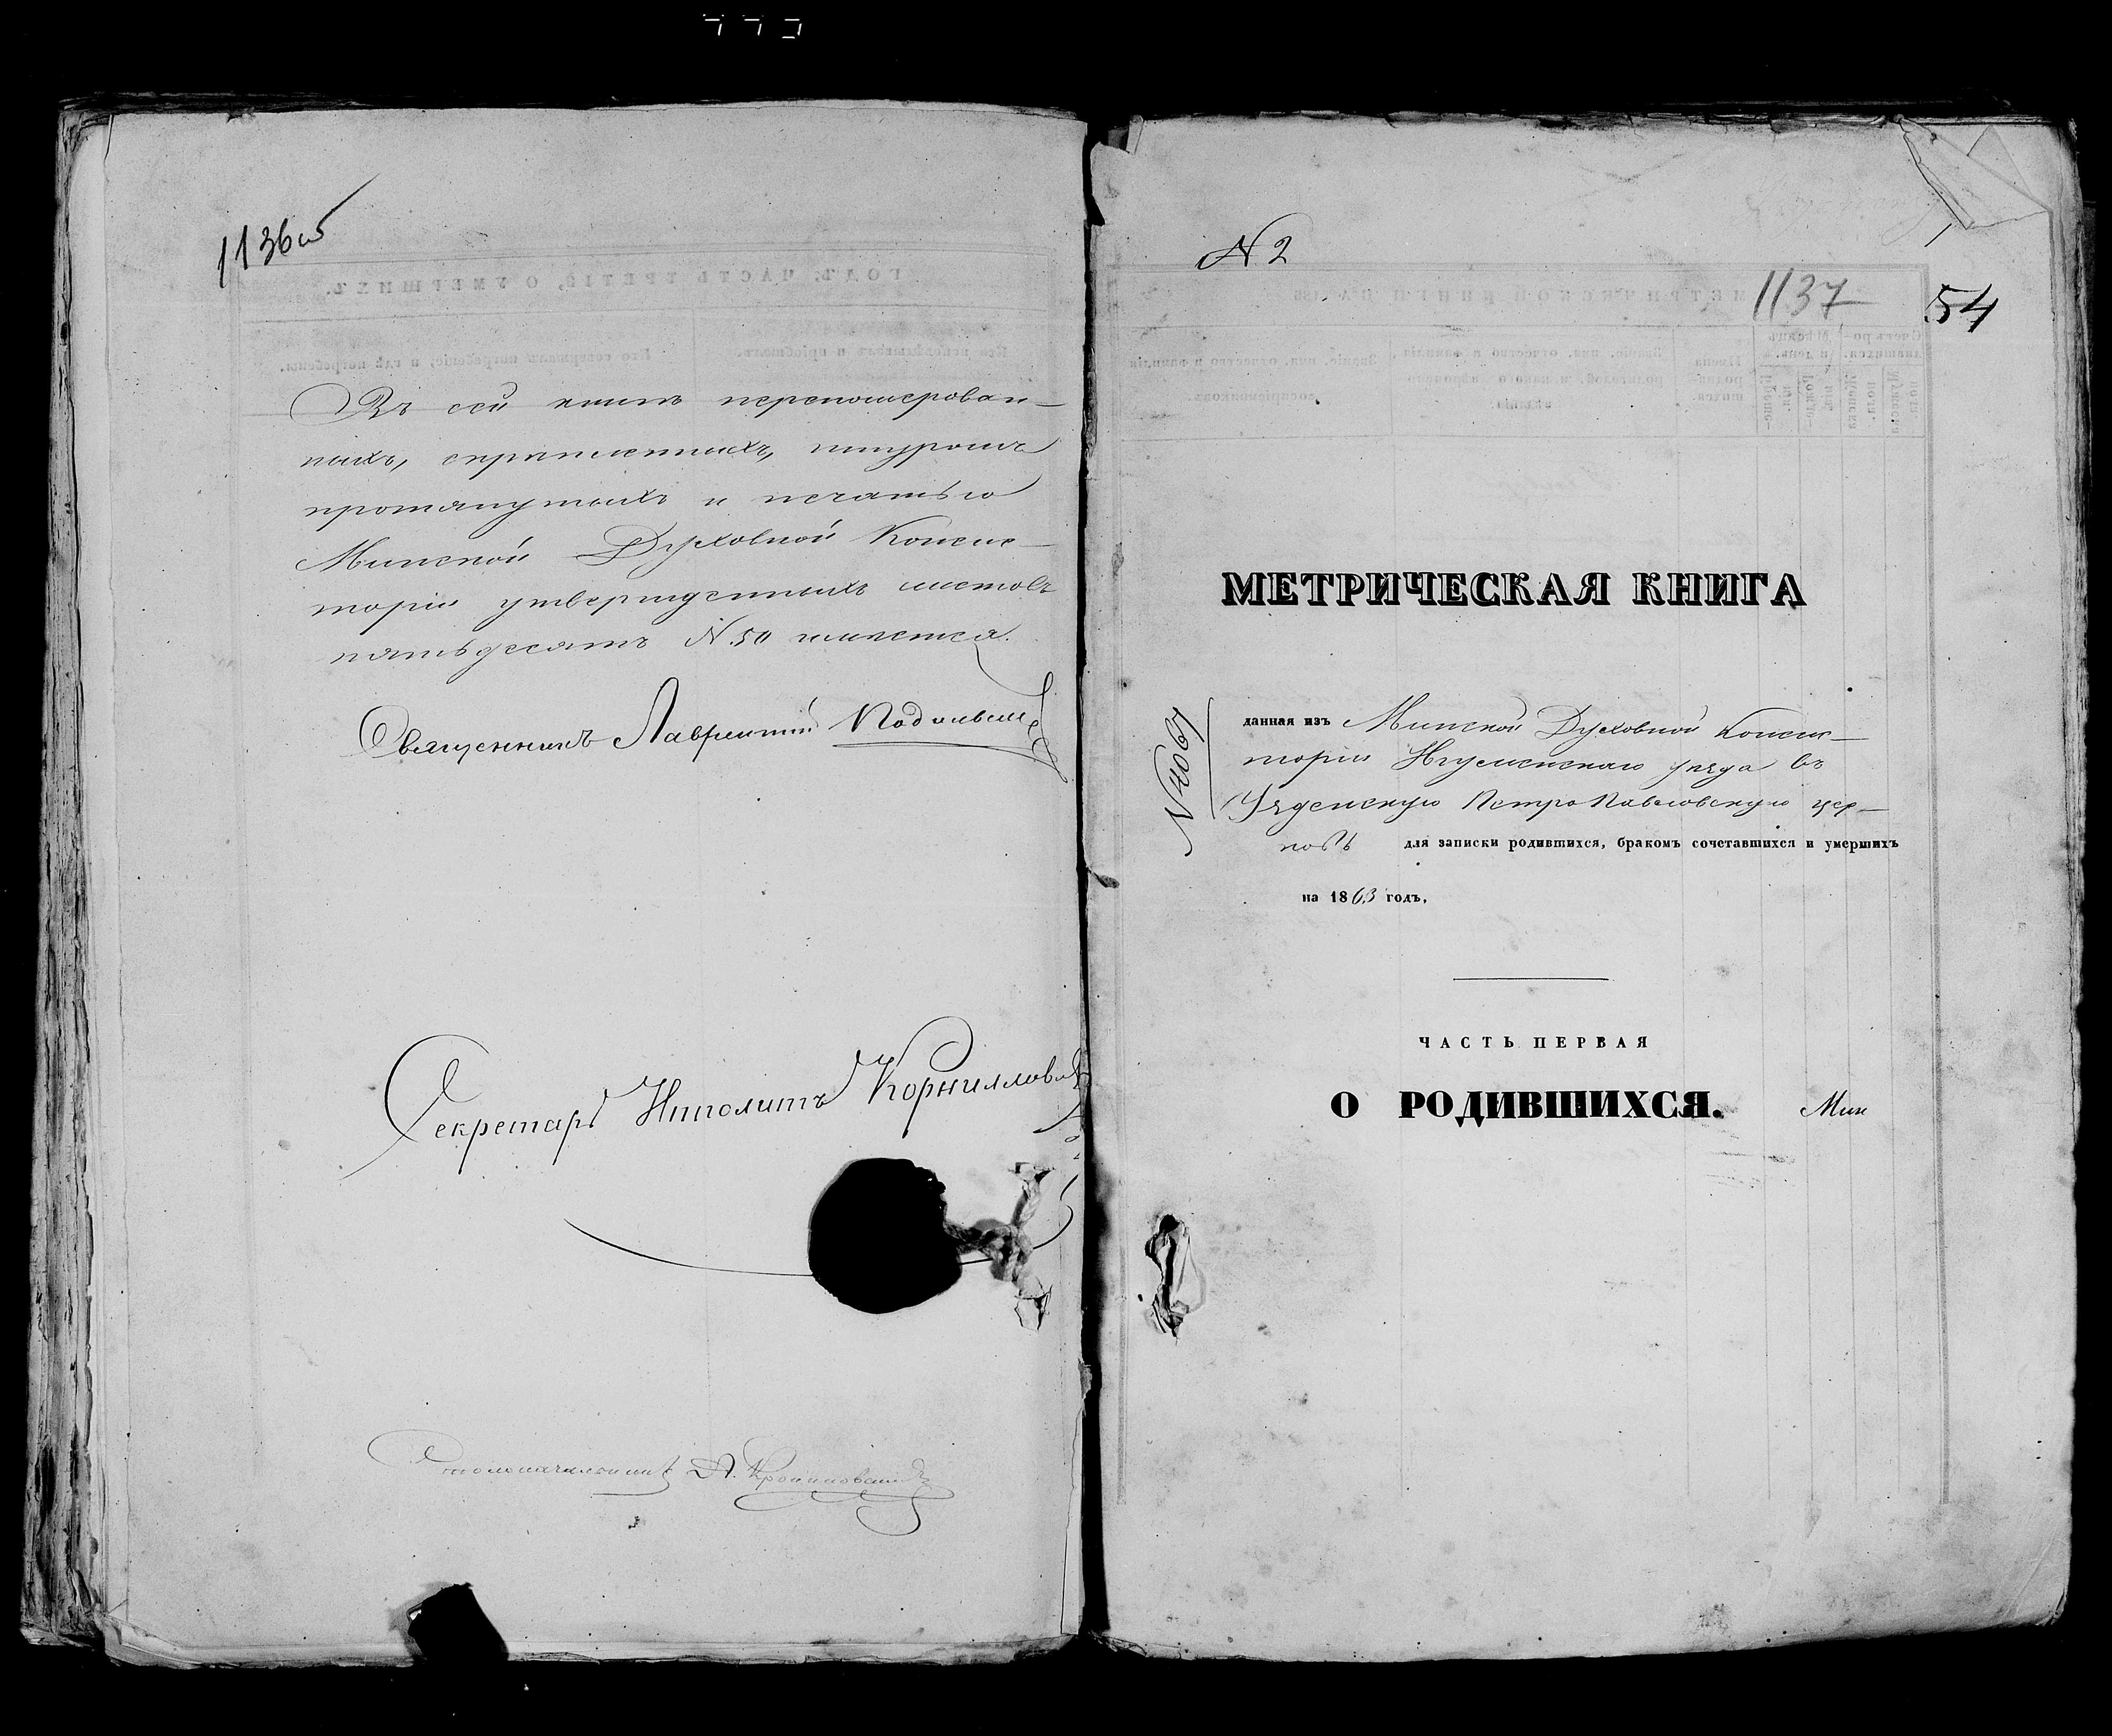 1136об
Въ сей книгѣ перономерован-
ныхъ, скрѣпленныхъ, шнуромъ
протянутыхъ и печатью
Минской Духовной Консис-
торіи утвержденныхъ листовъ
пятьдесятъ N. 50 имѣется.
Священникъ Лаврентій
Секретарь Иполитъ
Столоначальникъ
N 2
1137
54
МЕТРИЧЕСКАЯ КНИГА
N 4067
данная изъ Минской Духовной Консис-
торіи Игуменскаго уѣзда въ
Узденскую Петро Павловскую цер-
ковь для записки родившихся, бракомъ сочетавшихся и умершихъ
на 1863 годъ,
ЧАСТЬ ПЕРВАЯ
О РОДИВШИХСЯ. Мин